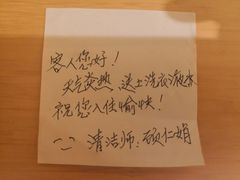 客人您好！
天气炎热，送上洗衣液
祝您入住愉快！
清洁师：顾仁娟